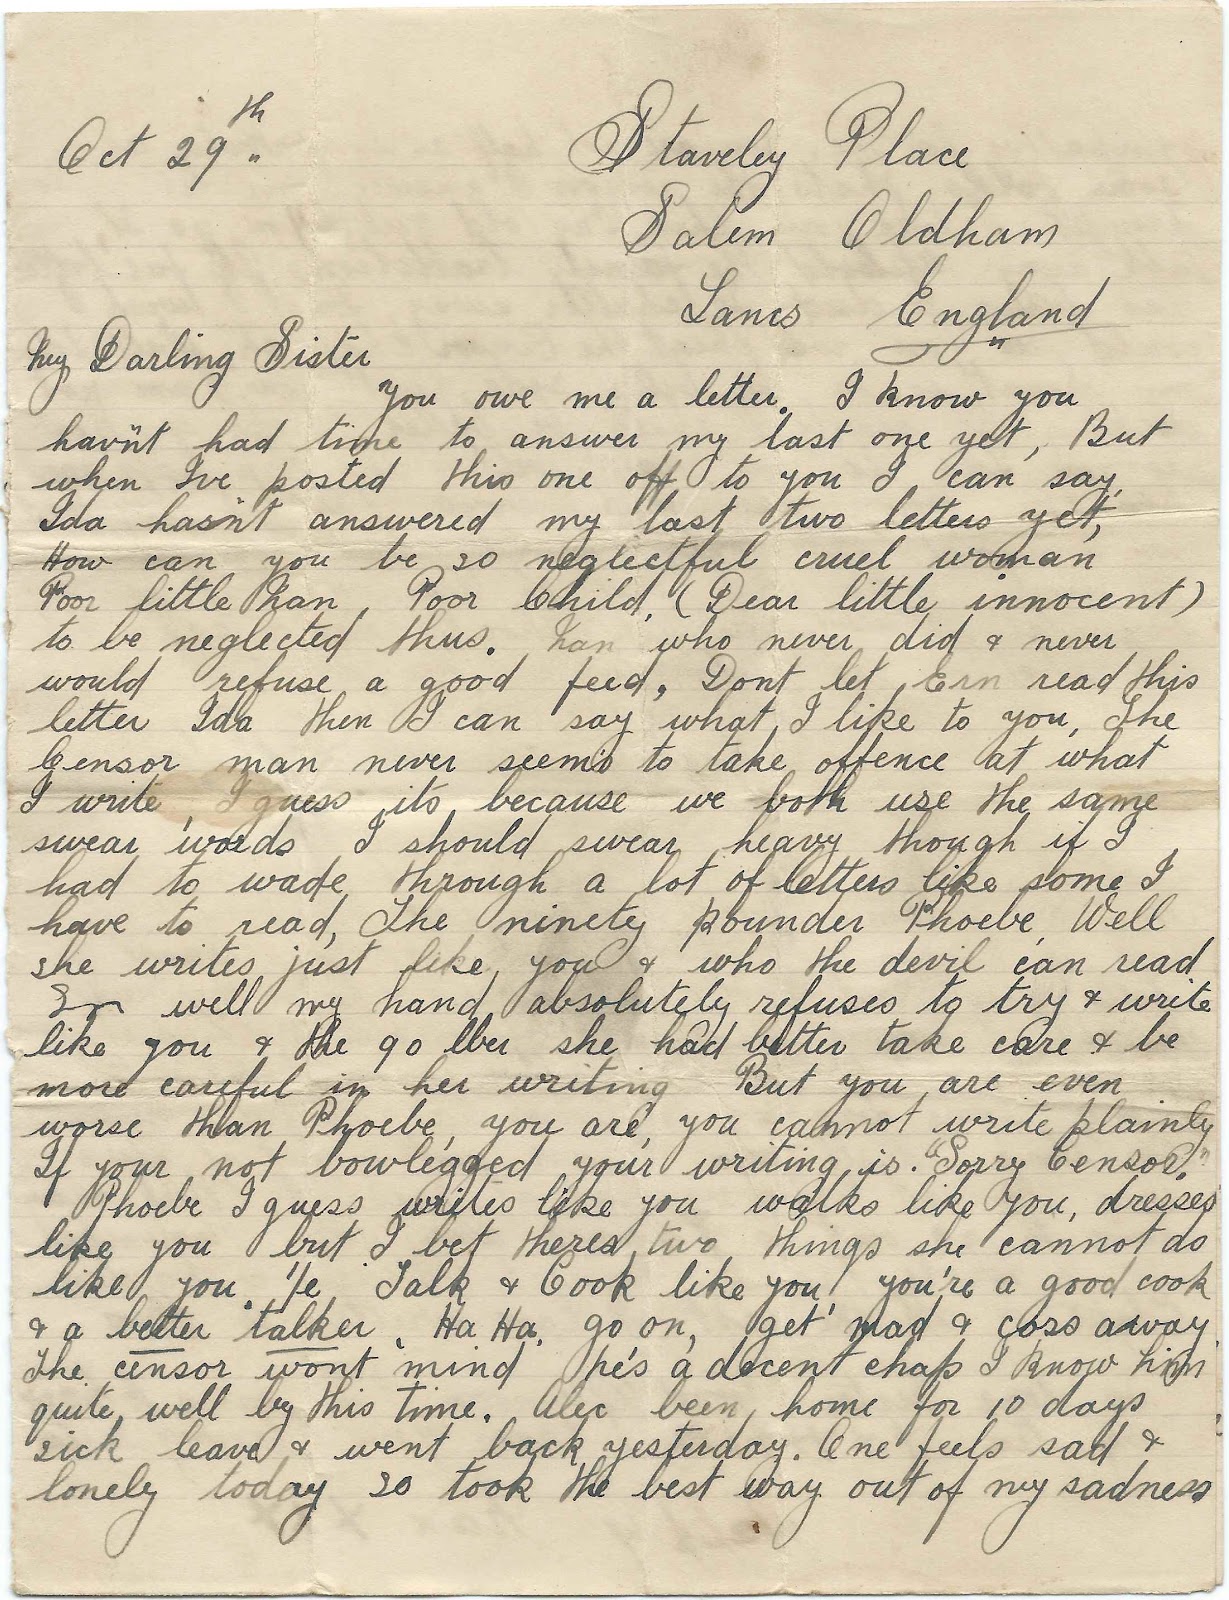 Oct 29th
Staveley Place
Salem Oldham
Lancs England
My Darling Sister
You owe me a letter. I know you
hav'nt had time to answer my last one yet, But
when I've posted this one off to you I can say,
Ida has'nt answered my last two letters yet,
How can you be so neglectful cruel woman
Poor little Nan, Poor Child, (Dear little innocent)
to be neglected thus. Nan who never did & never
would refuse a good feed, Dont let Ern read this
letter Ida then I can say what I like to you, The
Censor man never seems to take offence at what
I write, I guess its because we both use the same
swear words I should swear heavy though if I
had to wade through a lot of letters like some I
have to read, The ninety pounder Phoebe, Well
she writes just like you & who the devil can read
Er well my hand absolutely refuses to try & write
like you & the 90 lber she had better take care & be
more careful in her writing But you are even
worse than Phoebe, you are, you cannot write plainly
If your not bowlegged your writing is. "Sorry Censor."
Phoebe I guess writes like you walks like you, dresses
like you but I bet theres two things she cannot do
like you. I/e Talk & Cook like you you're a good cook
& a better talker. Ha Ha. go on, get mad & coss away
The censor wont mind he's a decent chap I know him
quite well by this time. Alec been home for 10 days
sick leave & went back yesterday. One feels sad &
lonely today so took the best way out of my sadness